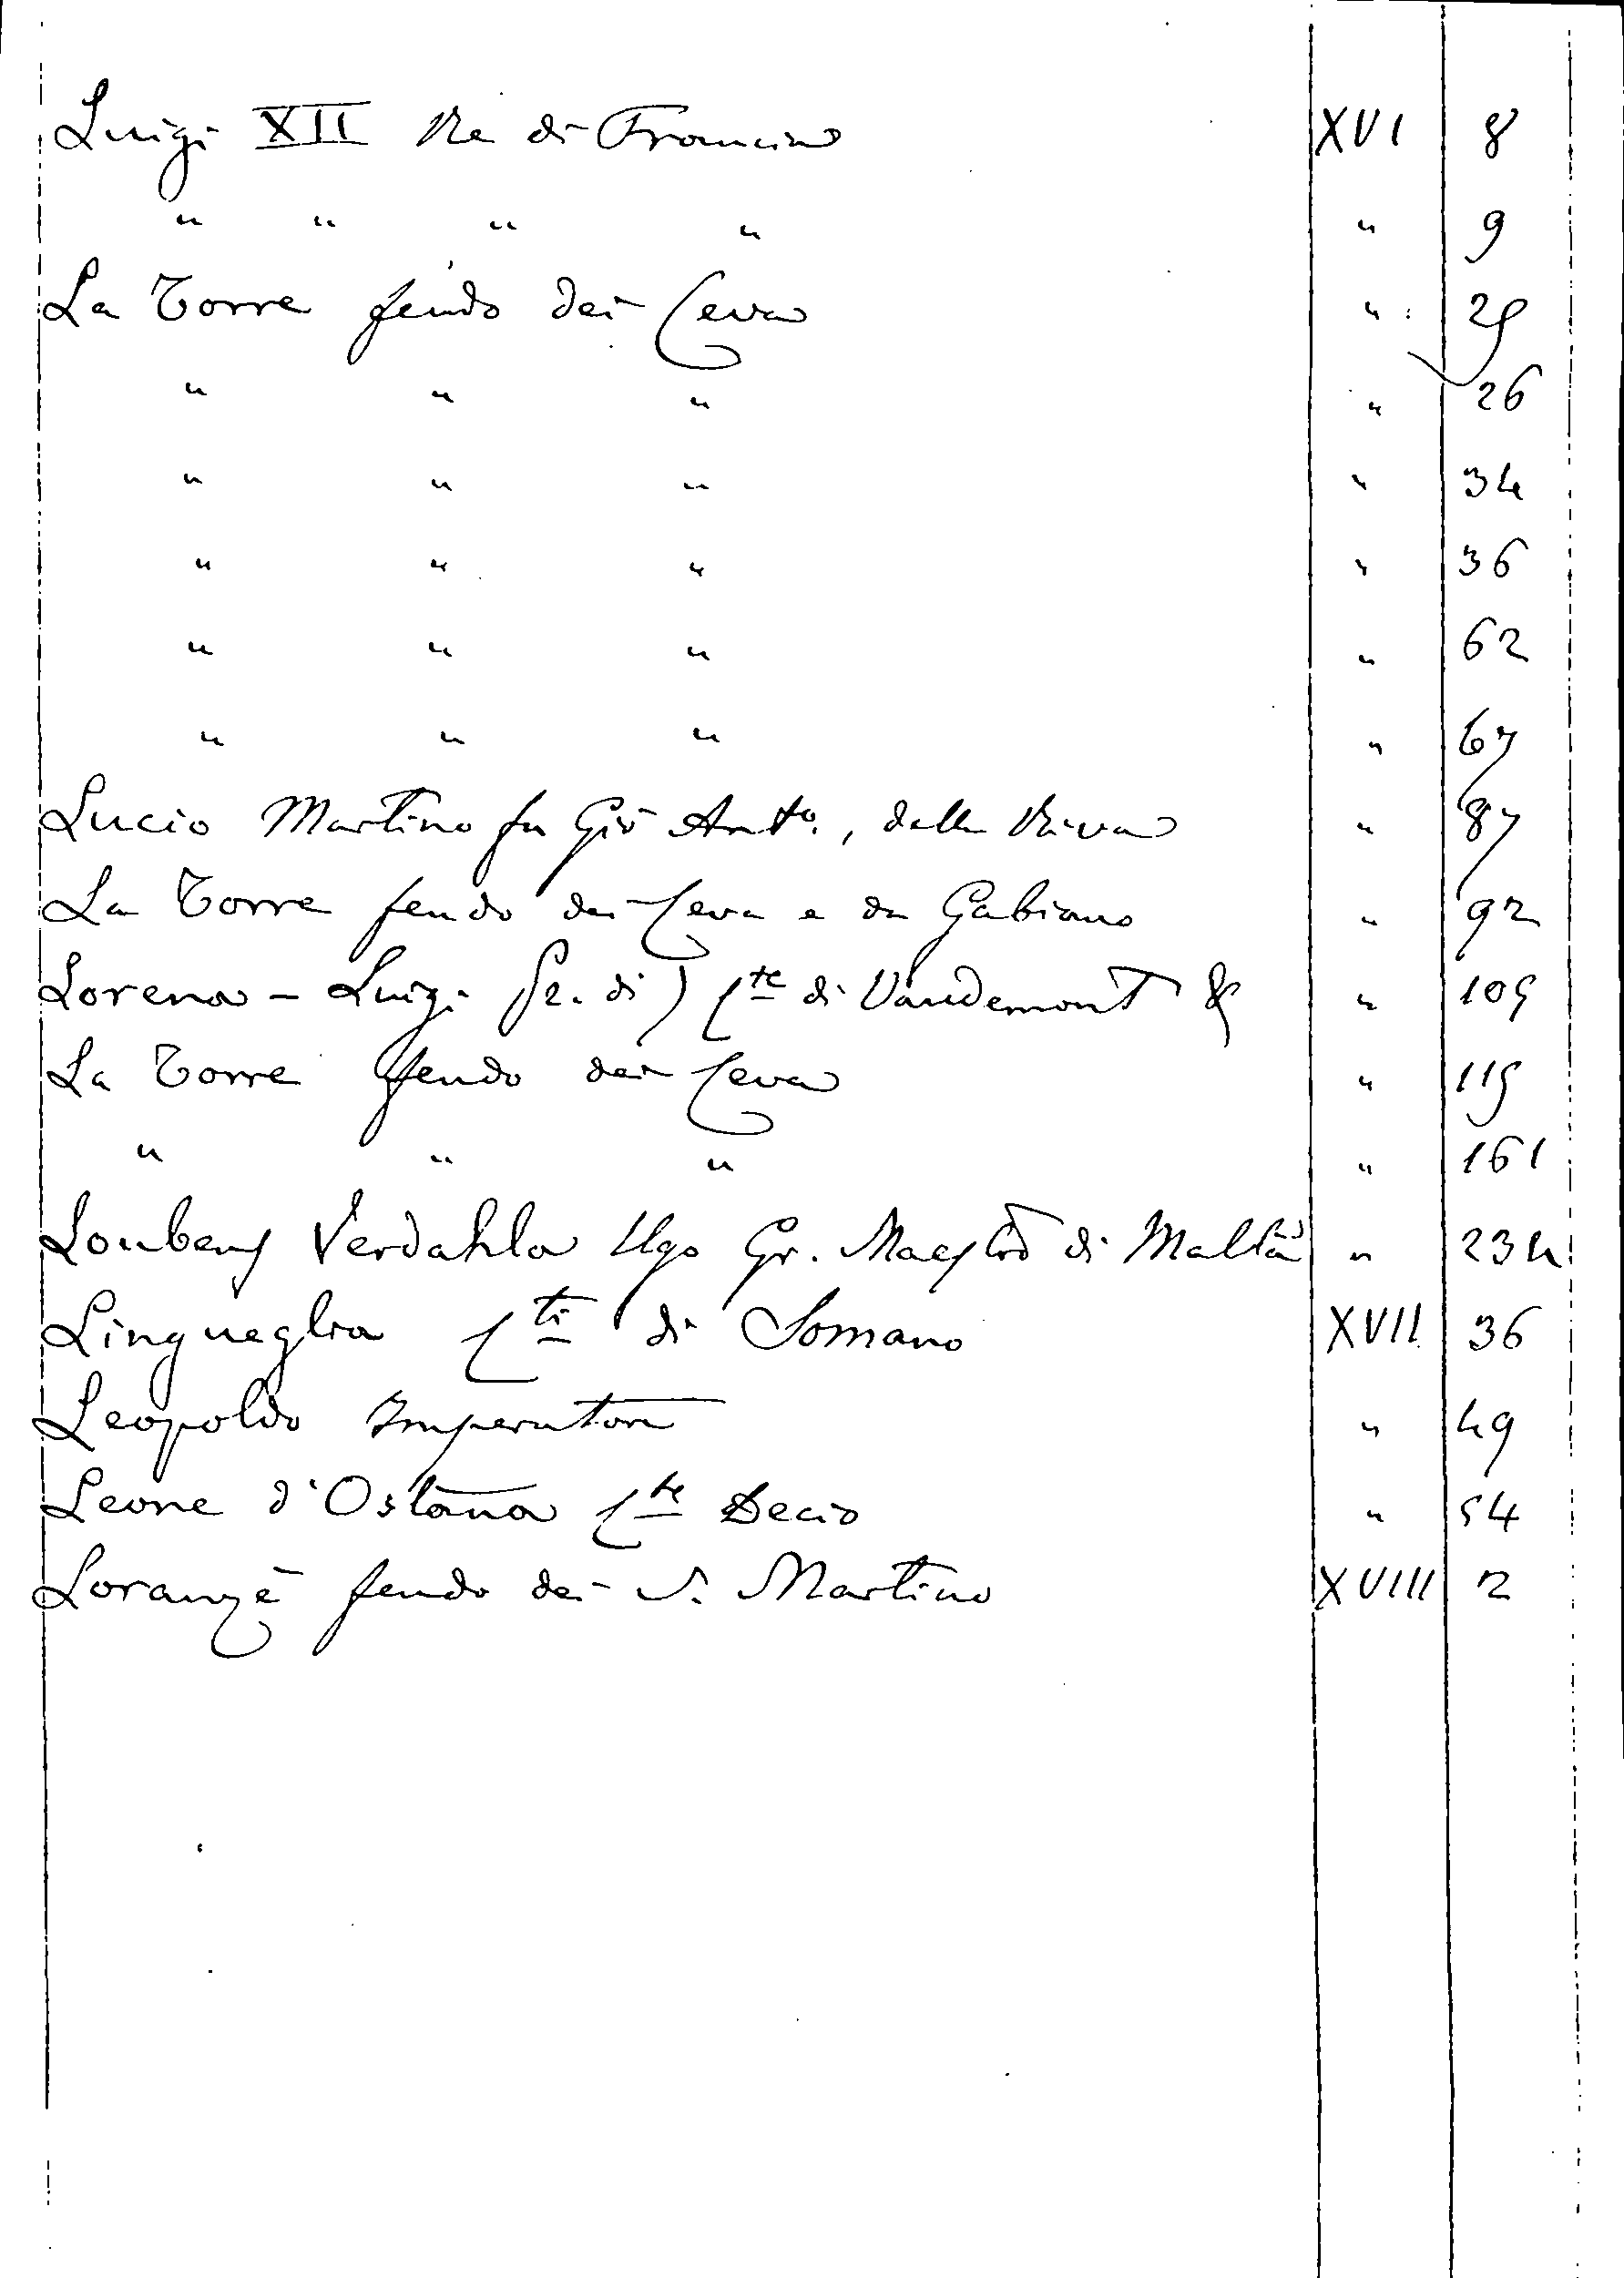 Luigi XII Re di Francia XVI 8
" " " " " 9
La Torre feudo dei Ceva " 25
" " " " 26
" " " " 34
" " " " 36
" " " " 62
" " " " 67
Lucio Martino fu Giò Ant.o, della Riva " 87
La Torre feudo dei Ceva e da Gabiano " 92
Lorena - Luigi Pr. di) Cte di Vaudemont & " 105
La Torre feudo dei Ceva " 115
" " " " 161
Loubens Verdahla Ugo Gr. Maestro di Malta " 234
Lingueglia Cti di Somano XVII 36
Leopoldo Imperatore " 49
Leone d'Ostana Cte Decio " 54
Loranzè feudo dei S. Martino XVIII 2